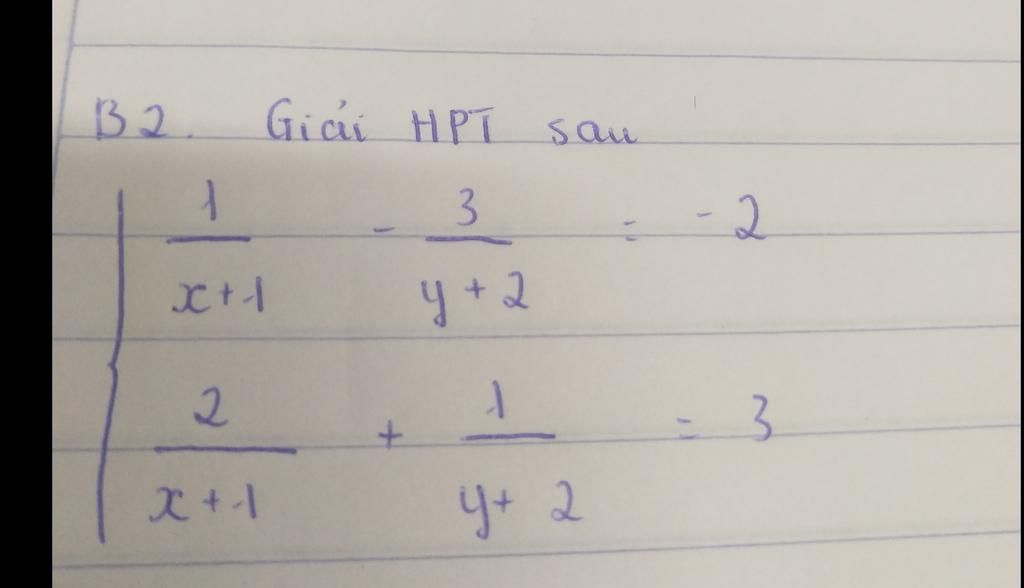 B2. Giải HPT sau
1/(x+1) - 3/(y+2) = -2
2/(x+1) + 1/(y+2) = 3